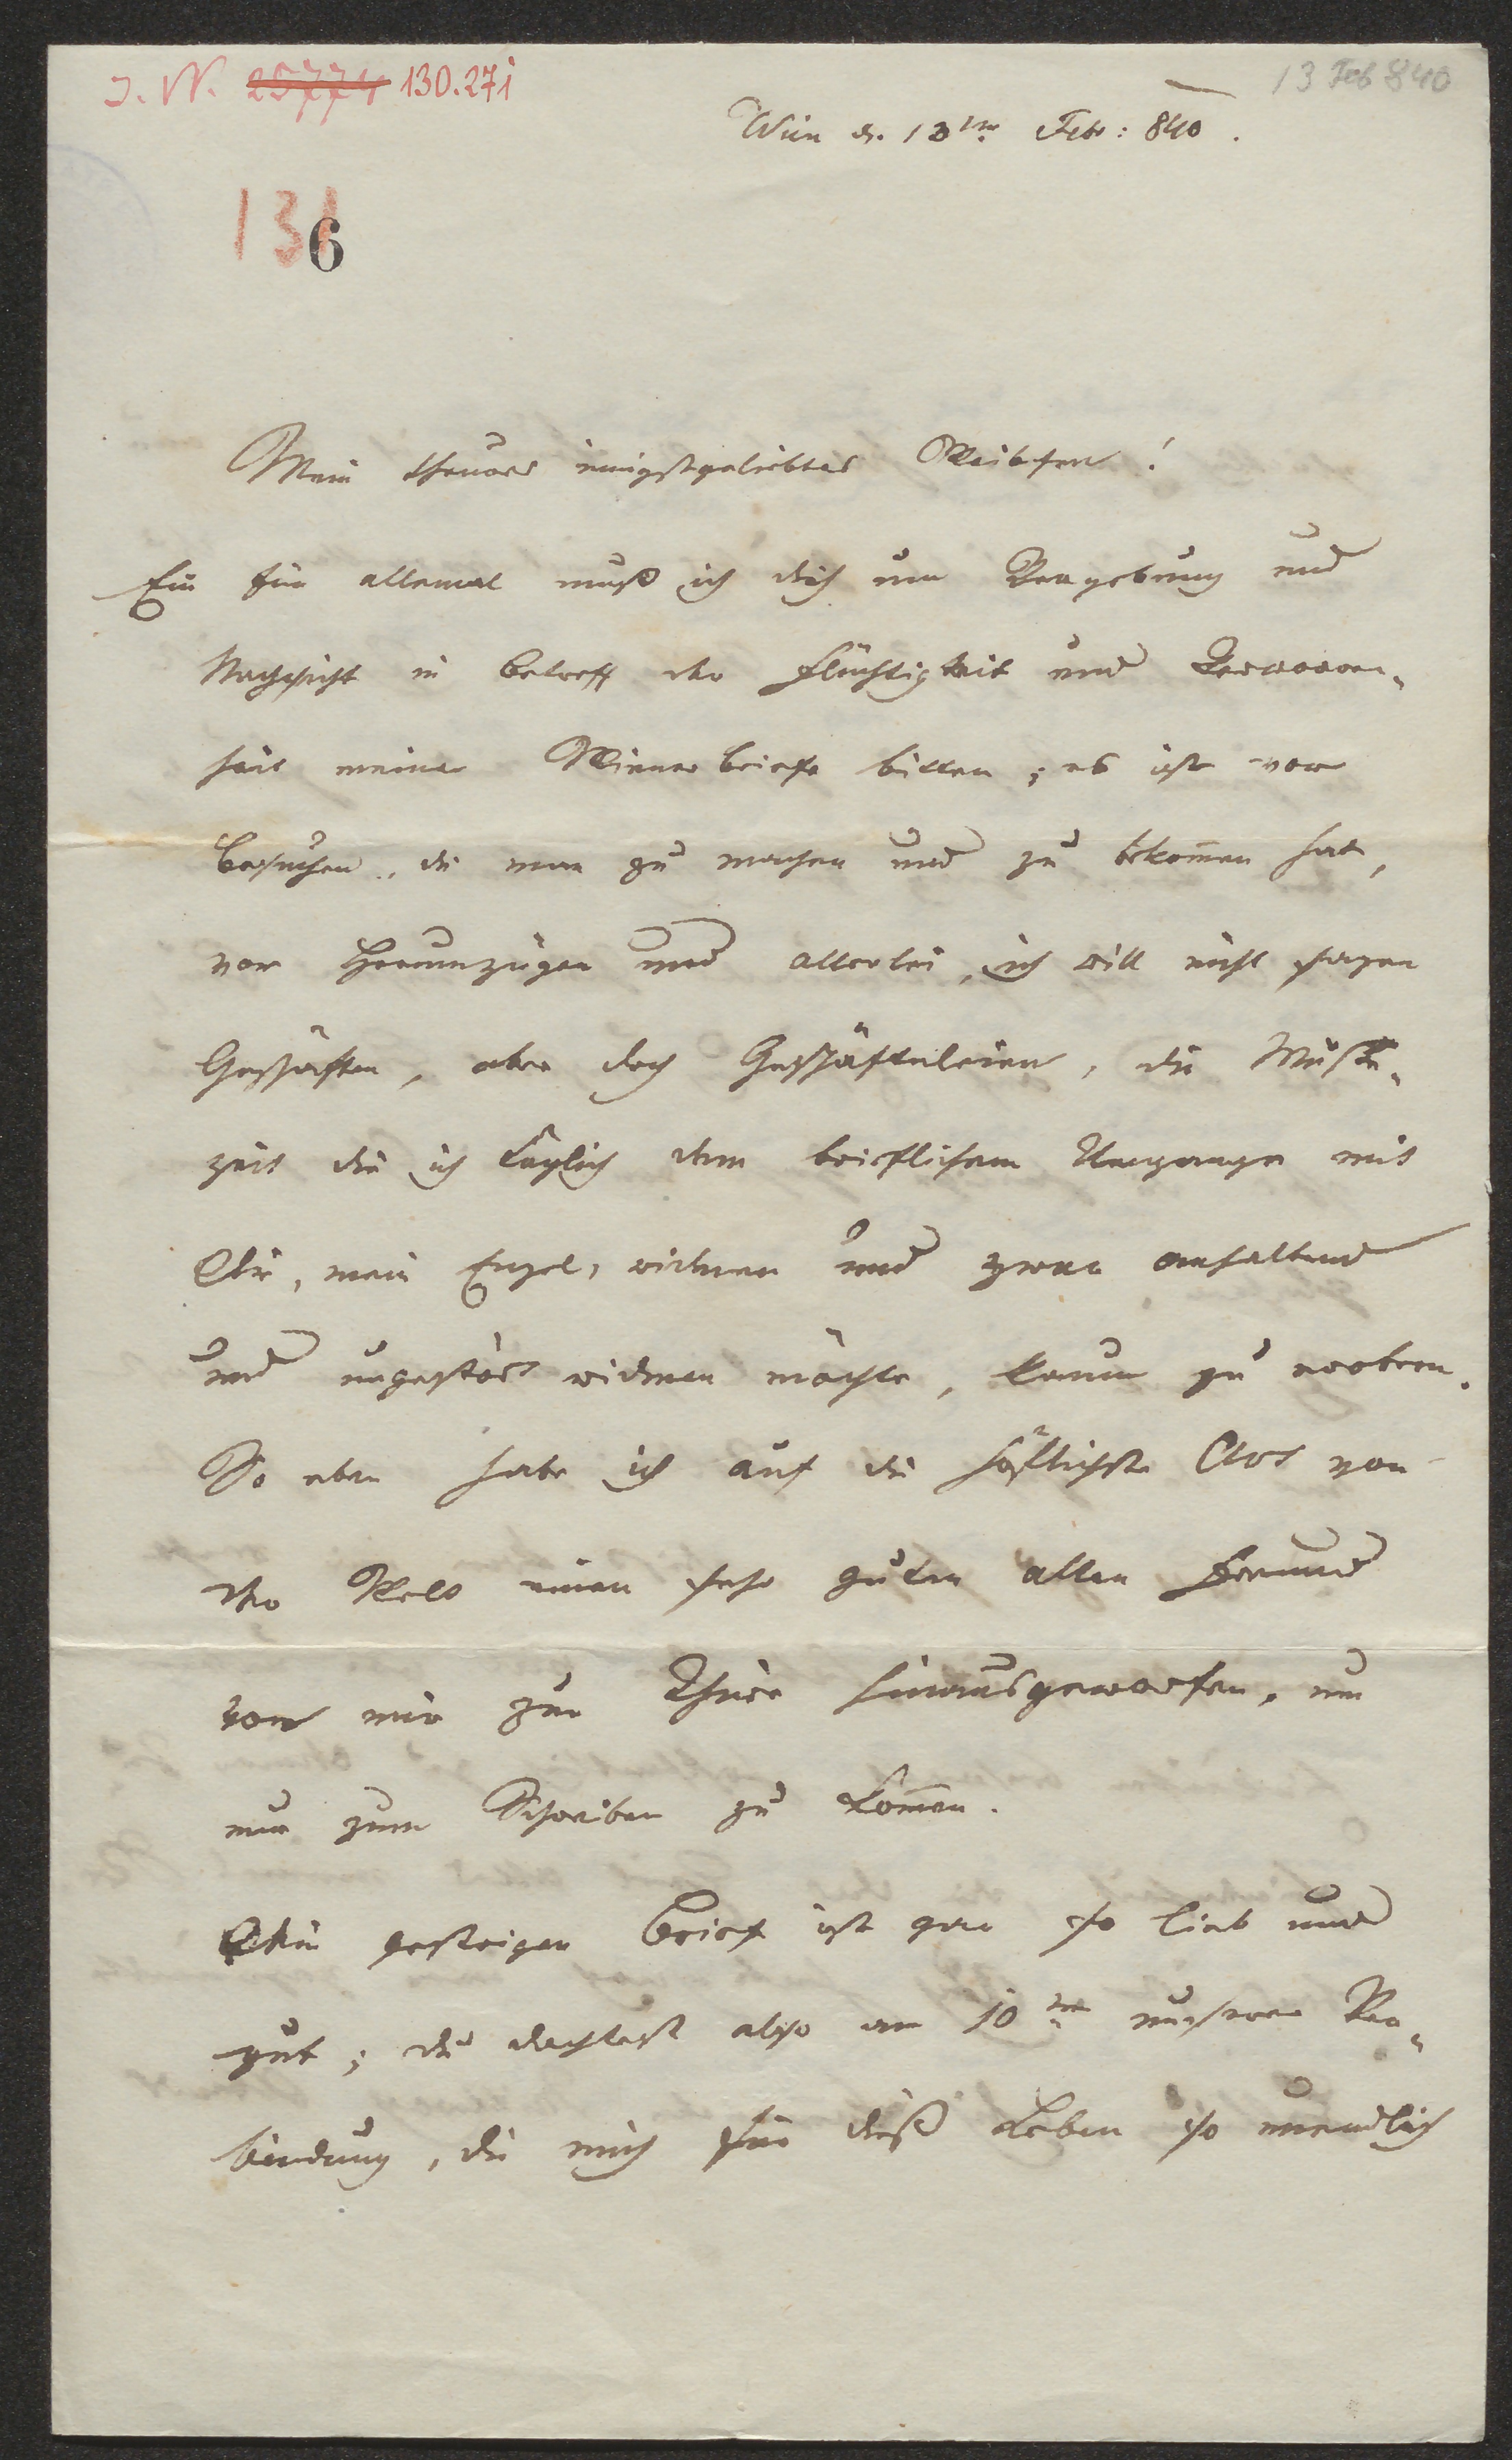 J. N. 25774 130.271
13 Feb 840
Wien d. 13ten Febr: 840.
131
6
Mein theures innigstgeliebtes Weibchen!
Ein für allemal muß ich dich um Vergebung und
Nachsicht in betreff der Flüchtigkeit und Verworren-
heit meiner Wiener briefe bitten; es ist vor
besuchen, die man zu machen und zu bekom̄en hat,
vor Herumzügen und allerlei, ich will nicht sagen
Geschäften, aber doch Geschäfteleien, die Muße-
zeit die ich täglich dem brieflichem Umgange mit
Dir, mein Engel, widmen und zwar anhaltend
und ungestört widmen möchte, kaum zu erobern.
So eben habe ich auf die höflichste Art von
der Welt einen sehr guten alten Freund
von mir zur Thüre hinausgeworfen, um
nur zum Schreiben zu kom̄en.
Dein gestriger brief ist gar so lieb und
gut; du dachtest also am 10ten unserer Ver-
bindung, die mich für dieß Leben so unendlich